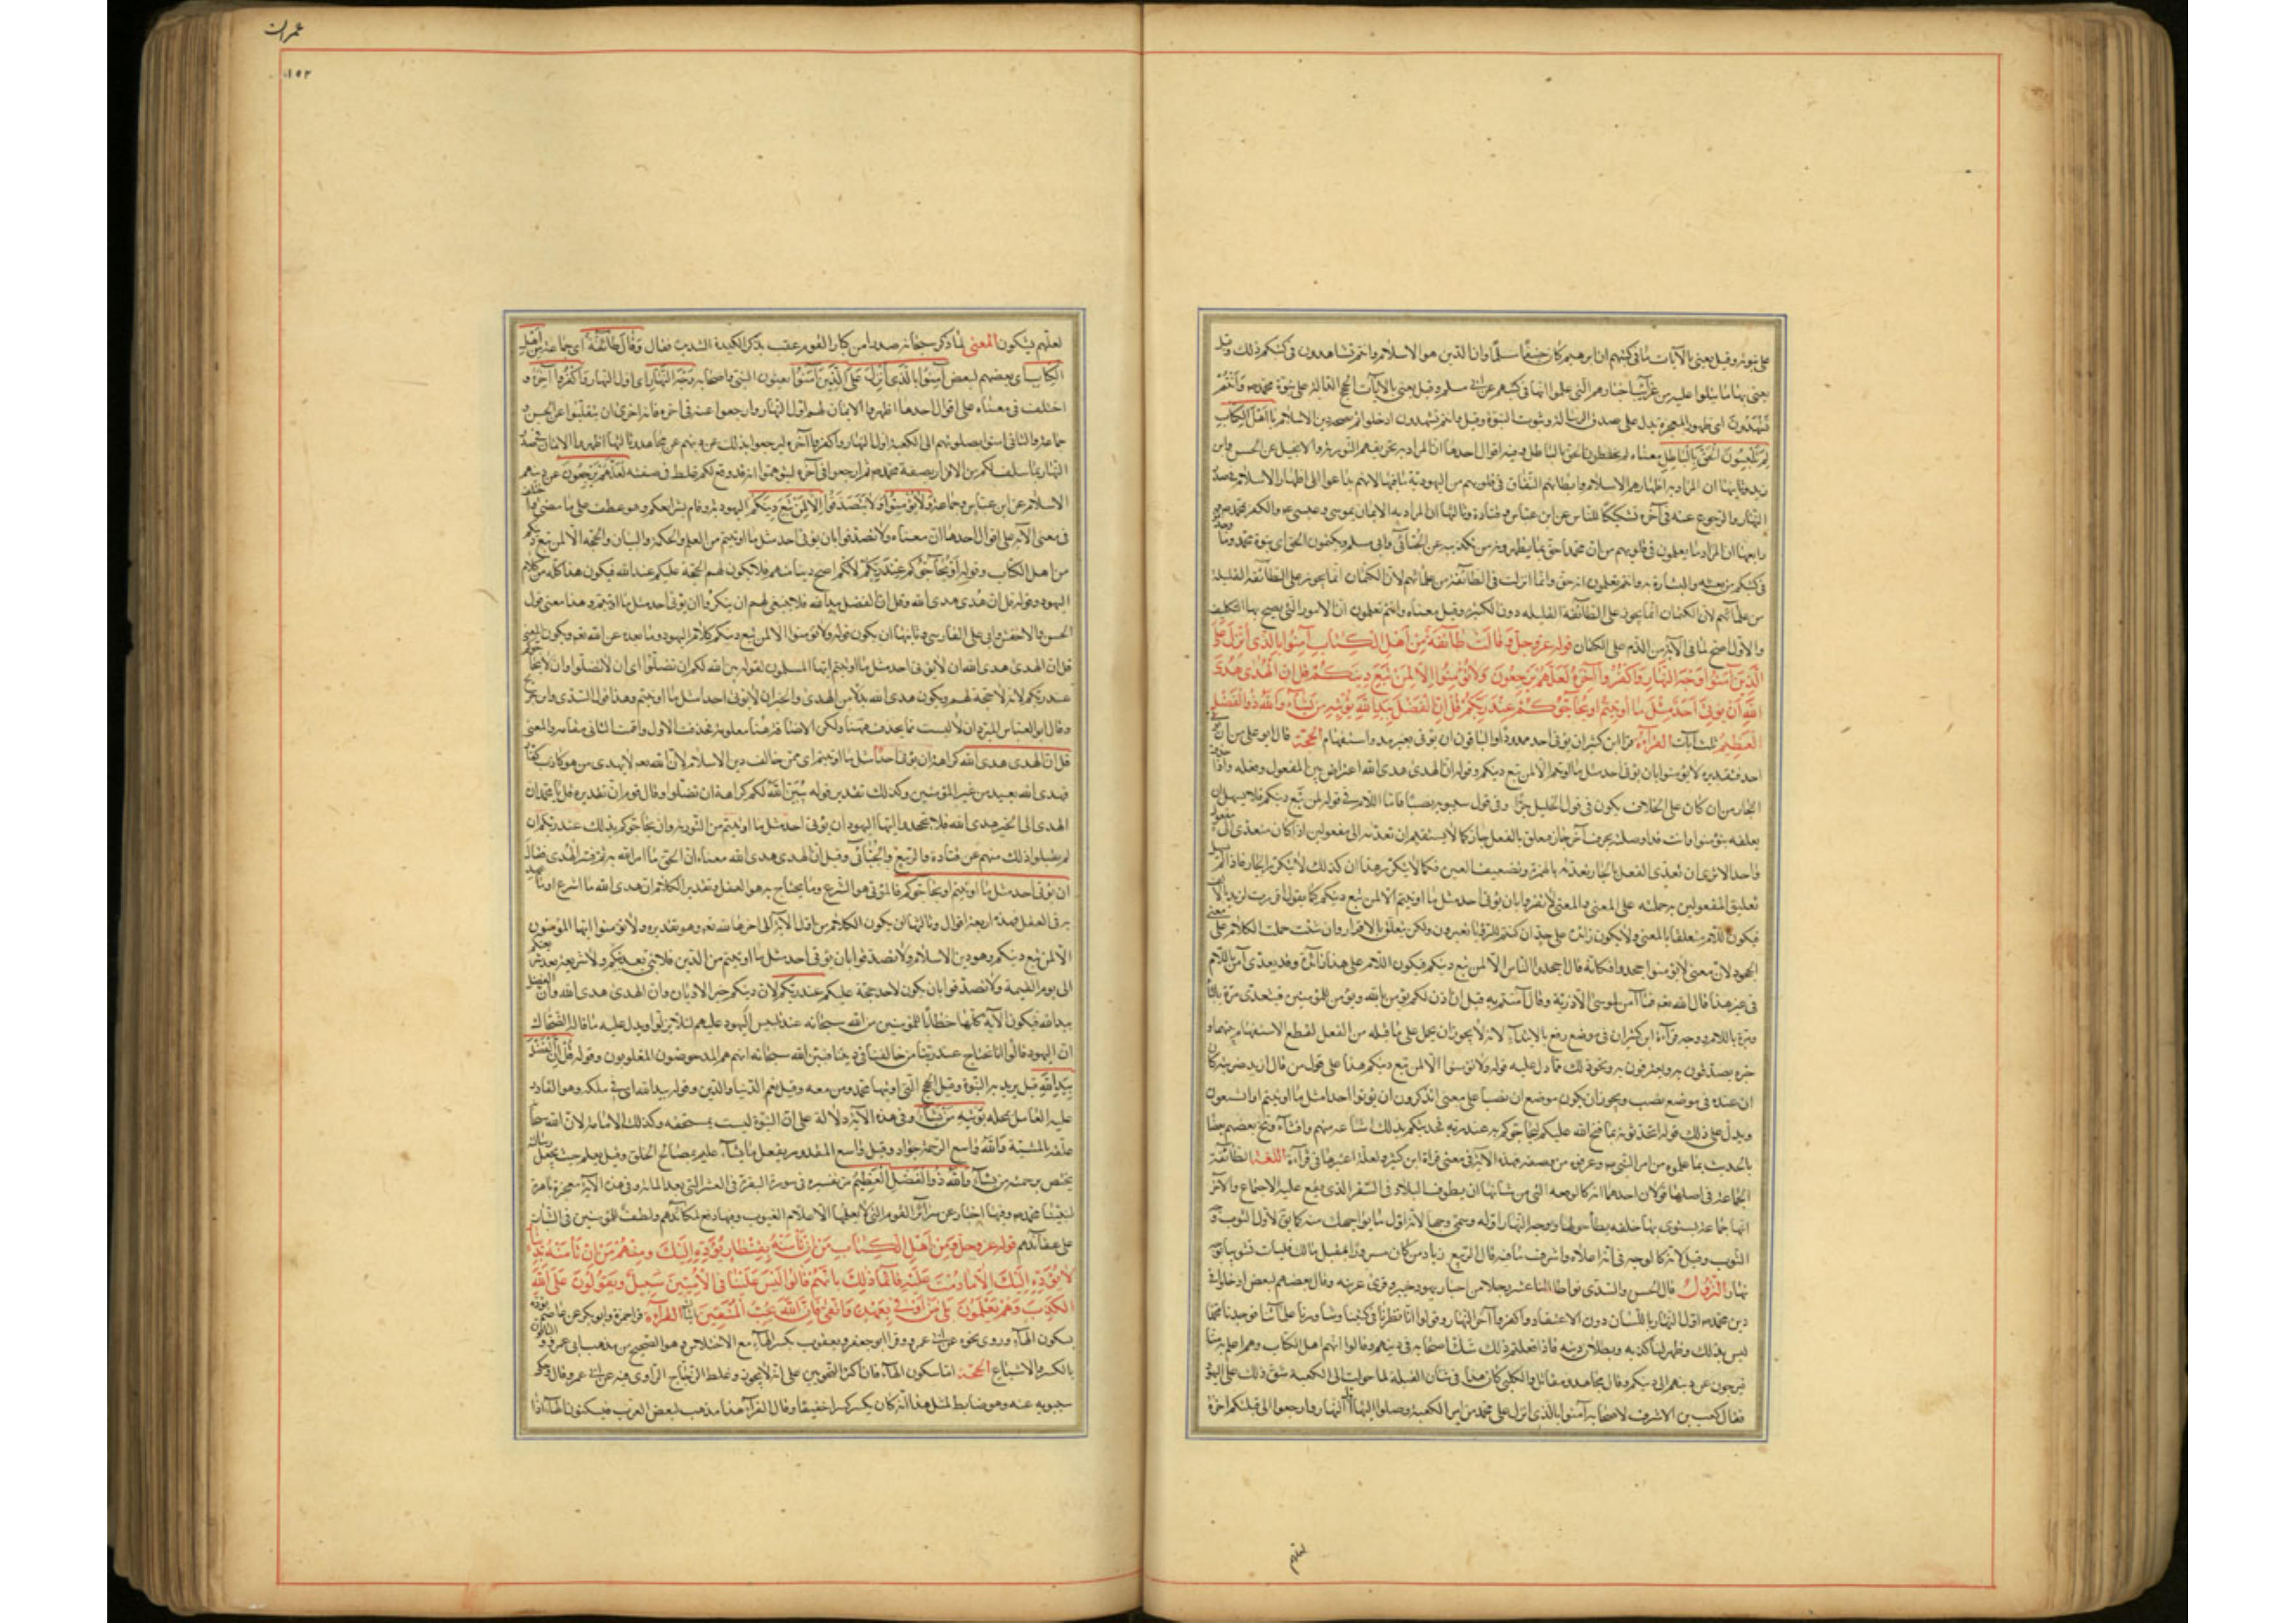 على نبوته وقيل يعنى بالآيات ما فى كتبهم ان ابرهيم كان حنيفا مسلما وان الدين هو الاسلام وانتم تشاهدون فى كتبكم ذلك وقيل
يعنى بها ما يتلوا عليهم من غرائب اخبارهم التى علموا انها فى كتبهم عن ابى مسلم وقيل يعنى بالآيات الحجج الدالة على نبوة محمد ص وَأَنْتُمْ
تَشْهَدُونَ اى ظهور المعجزة يدل على صدق الرسالة وثبوت النبوة وقيل وانتم تشهدون اذا خلوتم بصحة دين الاسلام يا أهل الكتاب
لِمَ تَلْبِسُونَ الْحَقَّ بِالْبَاطِلِ معناه لم تخلطون الحق بالباطل وفيه اقوال احدها ان المراد به تحريفهم التورية والانجيل عن الحسن وابن
زيد وثانيها ان المراد به اظهارهم الاسلام وابطانهم النفاق فى قلوبهم من اليهودية لانهم تداعوا الى اظهار الاسلام فى صدر
النهار والرجوع عنه فى آخره تشكيكا للناس عن ابن عباس وقتادة وثالثها ان المراد به الايمان بموسى وعيسى والكفر بمحمد ص
ورابعها ان المراد ما يعلمون فى قلوبهم من ان محمدا حق بما يظهرونه من تكذيبه عن الجبائى وابى مسلم وتكتمون الحق اى نبوة محمد وما وجدتم
فى كتبكم من نعته والبشارة به وانتم تعلمون انه حق وانما انزلت فى الطائفة من علمائهم لان الكتمان انما يجوز على الطائفة القليلة
من علمائهم لان الكتمان انما يجوز على الطائفة القليلة دون الكثير وقيل معناه وانتم تعلمون ان الامور التى يصح بها التكليف
والاول اصح لما فى الآية من الذم على الكتمان قوله عز وجل وَقَالَتْ طَائِفَةٌ مِنْ أَهْلِ الْكِتَابِ آمِنُوا بِالَّذِي أُنْزِلَ عَلَى
الَّذِينَ آمَنُوا وَجْهَ النَّهَارِ وَاكْفُرُوا آخِرَهُ لَعَلَّهُمْ يَرْجِعُونَ وَلَا تُؤْمِنُوا إِلَّا لِمَنْ تَبِعَ دِينَكُمْ قُلْ إِنَّ الْهُدَى هُدَى
اللَّهِ أَنْ يُؤْتَى أَحَدٌ مِثْلَ مَا أُوتِيتُمْ أَوْ يُحَاجُّوكُمْ عِنْدَ رَبِّكُمْ قُلْ إِنَّ الْفَضْلَ بِيَدِ اللَّهِ يُؤْتِيهِ مَنْ يَشَاءُ وَاللَّهُ ذُو الْفَضْلِ
الْعَظِيمِ ثلث آيات القراءة قرا ابن كثير ان يؤتى احد ممدودا والباقون ان يؤتى بغير مد واستفهام الحجة قال ابو على من
احد فتقديره لا تؤمنوا بان يؤتى احد مثل ما اوتيتم الا لمن تبع دينكم وقوله ان الهدى هدى الله اعتراض بين المفعول وفعله واذا
الجار من ان كان على الخلاف يكون فى قول الخليل جرا وفى قول سيبويه نصبا فاما اللام فى قوله لمن تبع دينكم فلا يسهل ان
فيكون اللام متعلقا بالمعنى ولا يكون زائدة على حد ان كنتم للرؤيا تعبرون ولكن يتعلق بالاقرار وان شئت حملت الكلام على معنى
الجحود لان معنى لا تؤمنوا اجحدوا فكانه قال اجحدوا الناس الا لمن تبع دينكم فيكون اللام على هذا زائدة وقد تعدى آمن باللام
فى غير هذا قال الله تعالى فما آمن لموسى الا ذرية وقال آمنتم به قبل ان اذن لكم يؤمن بالله ويؤمن للمؤمنين فتعدى مرة بالباء
ومرة باللام ووجه قراءة ابن كثير ان فى موضع رفع بالابتداء لانه لا يجوز ان يحمل على ما قبله من الفعل لقطع الاستفهام بينهما
خبره تصدقون به وتعترفون به ونحو ذلك مما دل عليه قوله ولا تؤمنوا الا لمن تبع دينكم هذا على قول من قال ازيد ضربته
ويدل على ذلك قوله اتحدثونهم بما فتح الله عليكم ليحاجوكم به عند ربكم
الجماعة فى اصلها قولان احدهما انه كالرفقة التى من شانها ان يطوف البلاد فى السفر الذى يقع عليه الاجتماع والآخر
انها جماعة يستوى بها حلقة يطاف حولها ووجه النهار اوله وسمى وجها لانه اول ما يواجهك منه كما يق لاول الثوب وجه
الثوب وقيل لانه كالوجه فى انه اعلاه واشرف ما فيه قال الربيع بن زياد من كان مسرورا بمقتل مالك فليأت نسوتنا بوجه
نهار النزول قال الحسن والسدى تواطا اثنا عشر رجلا من احبار يهود خيبر وقرى عرينة وقال بعضهم لبعض ادخلوا فى
دين محمد ص اول النهار باللسان دون الاعتقاد واكفروا آخر النهار وقولوا انا نظرنا فى كتبنا وشاورنا علماءنا فوجدنا محمدا
ليس بذلك وظهر لنا كذبه وبطلان دينه فاذا فعلتم ذلك شك اصحابه فى دينهم وقالوا انهم اهل الكتاب وهم اعلم به منا
فيرجعون عن دينهم الى دينكم وقال مجاهد ومقاتل والكلبى كان هذا فى شان القبلة لما حولت الى الكعبة شق ذلك على اليهود
فقال كعب بن الاشرف لاصحابه آمنوا بالذى انزل على محمد من امر الكعبة وصلوا اليها اول النهار وارجعوا الى قبلتكم آخره
لعلهم
عمران
١٥٢
لعلهم يشكون المعنى لما ذكر سبحانه صدرا من كبار القوم عقب بذكر المكيدة الشديدة فقال وَقَالَتْ طَائِفَةٌ اى جماعة مِنْ أَهْلِ
الْكِتَابِ اى بعضهم لبعض آمِنُوا بِالَّذِي أُنْزِلَ عَلَى الَّذِينَ آمَنُوا يعنون النبى واصحابه وَجْهَ النَّهَارِ اى اول النهار وَاكْفُرُوا آخِرَهُ و
اختلف فى معناه على اقوال احدها اظهروا الايمان لهم اول النهار وارجعوا عنه فى آخره فانه احرى ان ينقلبوا عن دينهم عن الحسن و
جماعة والثانى آمنوا بصلوتهم الى الكعبة اول النهار واكفروا آخره ليرجعوا بذلك عن دينهم عن مجاهد وثالثها اظهروا الايمان فى صدر
النهار بما سلف لكم من الاقرار بصفة محمد ص ثم ارجعوا فى آخره لتوهموا انه قد وقع لكم غلط فى صفته لَعَلَّهُمْ يَرْجِعُونَ عن دينهم
الاسلام عن ابن عباس وجماعة وَلَا تُؤْمِنُوا ولا تصدقوا إِلَّا لِمَنْ تَبِعَ دِينَكُمْ اليهودية وقام بشرايعكم وهو عطف على ما مضى واختلف
فى معنى الآية على اقوال احدها ان معناه ولا تصدقوا بان يؤتى احد مثل ما اوتيتم من العلم والحكمة والبيان والحجة الا لمن تبع دينكم
من اهل الكتاب وقوله أَوْ يُحَاجُّوكُمْ عِنْدَ رَبِّكُمْ لانكم اصح دينا منهم فلا يكون لهم الحجة عليكم عند الله فيكون هذا كله من كلام
اليهود وقوله قل ان الهدى هدى الله وقل ان الفضل بيد الله فلا ينبغى لهم ان ينكروا ان يؤتى احد مثل ما اوتيتم وهذا معنى قول
الحسن والاخفش وابى على الفارسى وثانيها ان يكون قوله ولا تؤمنوا الا لمن تبع دينكم كلام اليهود وما بعده عن الله تعالى ويكون المعنى
قل ان الهدى هدى الله ان لا يؤتى احد مثل ما اوتيتم ايها المسلمون لقوله يبين الله لكم ان تضلوا اى ان لا تضلوا وان لا يحاجوكم
عند ربكم لانه لا حجة لهم ويكون هدى الله بدلا من الهدى والخبر ان لا يؤتى احد مثل ما اوتيتم وهذا قول السدى وابن جريج
وقال ابو العباس المبرد ان لا ليست مما يحذف ههنا ولكن الاضافة هنا معلومة فحذفت الاول واقمت الثانى مقامه والمعنى
قل ان الهدى هدى الله كراهة ان يؤتى احد مثل ما اوتيتم اى ممن خالف دين الاسلام لان الله لا يهدى من هو كاذب كفار
فهدى الله بعيد من غير المؤمنين وكذلك تقدير قوله يُبَيِّنُ اللَّهُ لَكُمْ كراهة ان تضلوا وقال قوم ان تقديره قل يا محمد ان
الهدى الى الخير هدى الله فلا تجحدوا ايها اليهود ان يؤتى احد مثل ما اوتيتم من النبوة وان يحاجوكم بذلك عند ربكم ان
لم تقبلوا ذلك منهم عن قتادة والربيع والجبائى وقيل ان الهدى هدى الله معناه ان الحق ما امر الله به ثم فسر الهدى فقال
ان يؤتى احد مثل ما اوتيتم او يحاجوكم فالمؤتى هو الشرع وما يحتاج به هو العقل وتقدير الكلام ان هدى الله ما شرع او ما عهد
به فى العقل فهذه اربعة اقوال وثالثها ان يكون الكلام من اول الآية الى آخرها لله تعالى وهو تقديره ولا تؤمنوا ايها المؤمنون
الا لمن تبع دينكم وهو دين الاسلام ولا تصدقوا بان يؤتى احد مثل ما اوتيتم من الدين فلا نبى بعد نبيكم ولا شريعة بعد شريعتكم
الى يوم القيمة ولا تصدقوا بان يكون لاحد حجة عليكم عند ربكم لان دينكم خير الاديان وان الهدى هدى الله وان الفضل
بيد الله فيكون الآية كلها خطابا للمؤمنين من الله سبحانه عند تلبيس اليهود عليهم لئلا يزلوا ويدل عليه ما قاله الضحاك
ان اليهود قالوا انا نحتاج عند ربنا من خالفنا فى ديننا فبين الله سبحانه انهم هم المدحوضون المغلوبون وقوله قُلْ إِنَّ الْفَضْلَ
بِيَدِ اللَّهِ قيل يريد به النبوة وقيل الحجج التى اوتيها محمد ومن معه وقيل نعم الدنيا والدين وقوله بيد الله اى فى ملكه وهو القادر
عليه العالم بمحله يُؤْتِيهِ مَنْ يَشَاءُ وفى هذه الآية دلالة على ان النبوة ليست بمستحقة وكذلك الامامة لان الله سبحانه
علقه بالمشية وَاللَّهُ وَاسِعٌ الرحمة جواد وقيل واسع المقدور يفعل ما يشاء عليم بمصالح الخلق وقيل يعلم حيث يجعل رسالته
يختص برحمته من يشاء وَاللَّهُ ذُو الْفَضْلِ الْعَظِيمِ مر تفسيره فى سورة البقرة فى العشر التى بعد المائة وفى هذه الآية معجزة باهرة
لنبينا محمد ص وفيها اخبار عن سرائر القوم التى لا يعلمها الا علام الغيوب وفيها دفع لمكائدهم ولطف للمؤمنين فى الثبات
على عقائدهم قوله عز وجل وَمِنْ أَهْلِ الْكِتَابِ مَنْ إِنْ تَأْمَنْهُ بِقِنْطَارٍ يُؤَدِّهِ إِلَيْكَ وَمِنْهُمْ مَنْ إِنْ تَأْمَنْهُ بِدِينَارٍ
لَا يُؤَدِّهِ إِلَيْكَ إِلَّا مَا دُمْتَ عَلَيْهِ قَائِمًا ذَلِكَ بِأَنَّهُمْ قَالُوا لَيْسَ عَلَيْنَا فِي الْأُمِّيِّينَ سَبِيلٌ وَيَقُولُونَ عَلَى اللَّهِ
الْكَذِبَ وَهُمْ يَعْلَمُونَ بَلَى مَنْ أَوْفَى بِعَهْدِهِ وَاتَّقَى فَإِنَّ اللَّهَ يُحِبُّ الْمُتَّقِينَ آيتان القراءة قرا حمزة وابو بكر عن عاصم يؤده
بسكون الهاء وروى نحوه عن ابى عمرو وقرا ابو جعفر ويعقوب بكسر الهاء مع الاختلاس وهو الصحيح من مذهب ابى عمرو والباقون
بالكسر والاشباع الحجة اما سكون الهاء فان اكثر النحويين على انه لا يجوز وغلط الزجاج الراوى فيه عن ابى عمرو وقال
سيبويه عنه وهو ضابط لمثل هذا انه كان يكسر كسرا خفيفا وقال الفراء هذا مذهب لبعض العرب يسكنون الهاء اذا